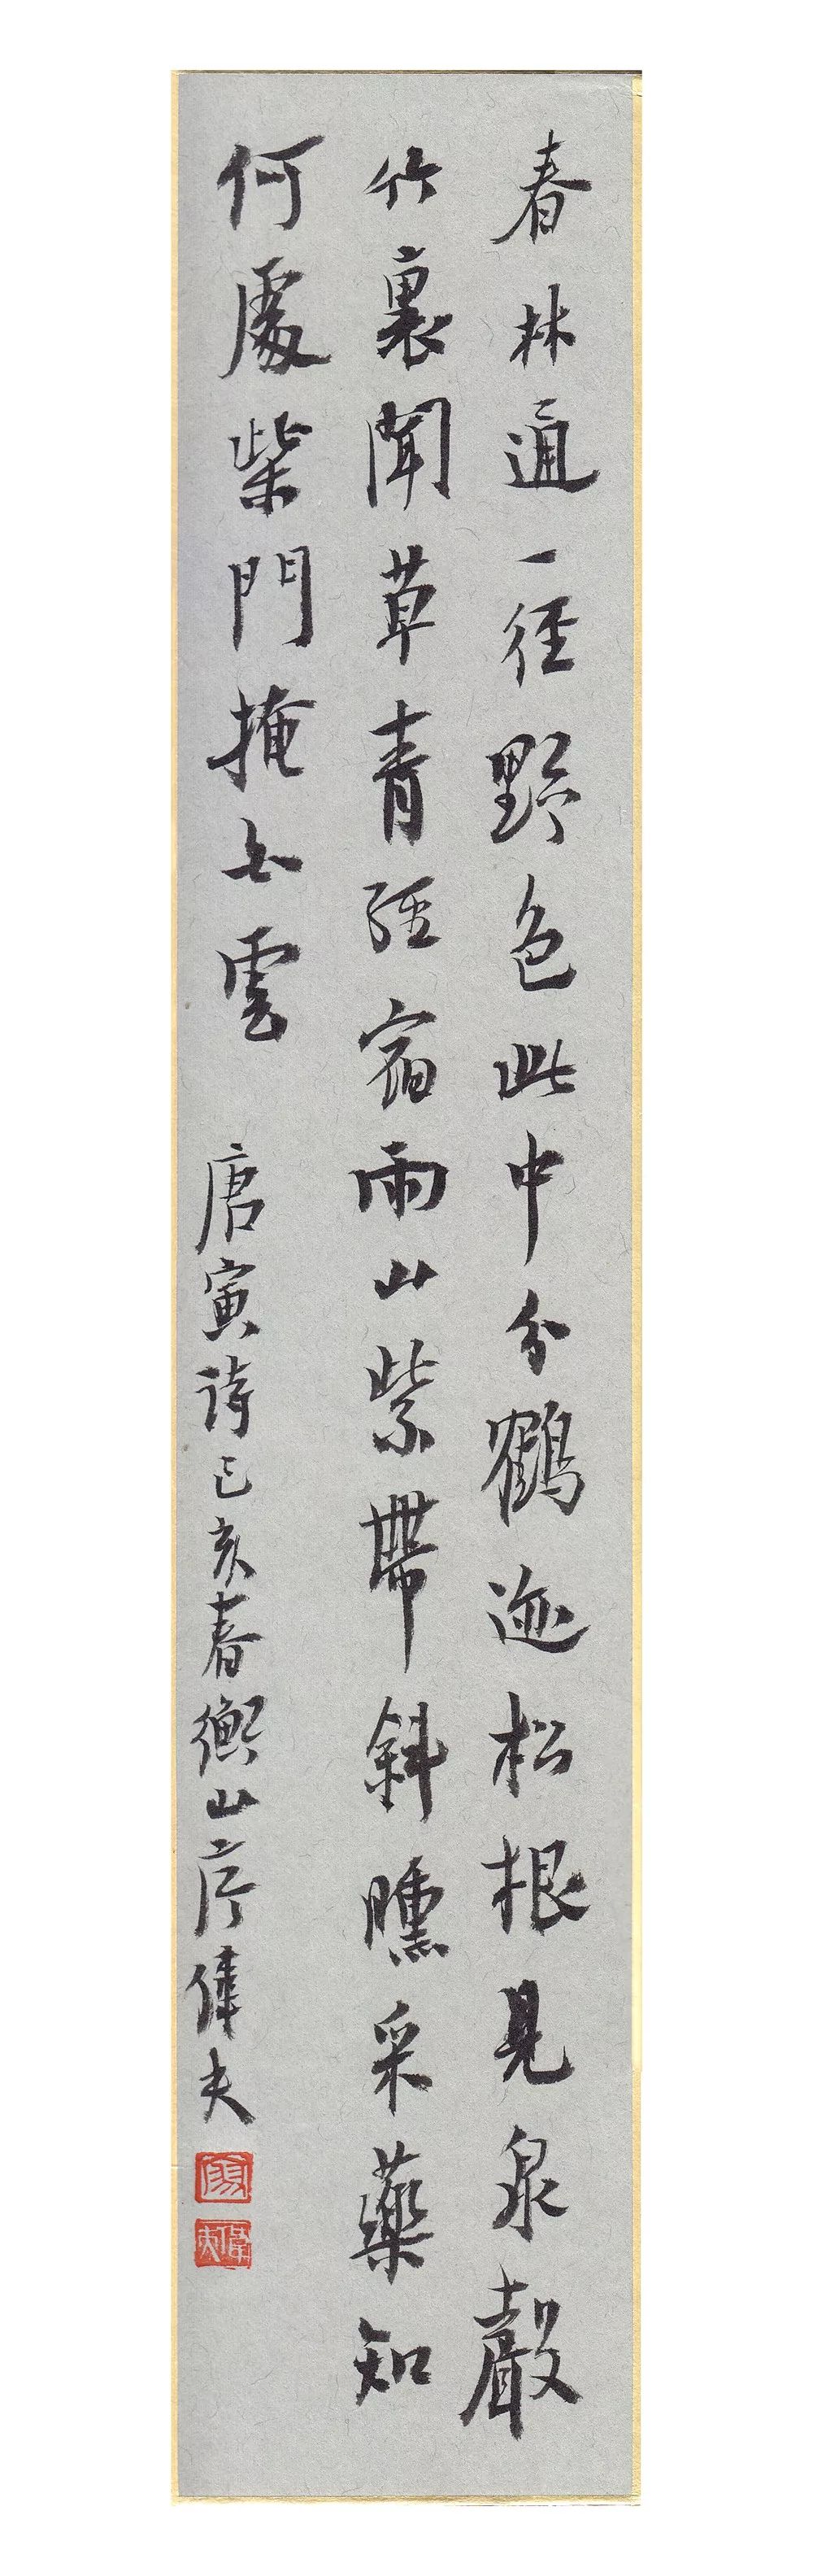 春林通一径野色此中分鶴迹松根見泉聲
竹裏聞草青經宿雨山紫帶斜曛采藥知
何處柴門掩白雲
唐寅詩己亥春衡山彦偉夫
偉夫